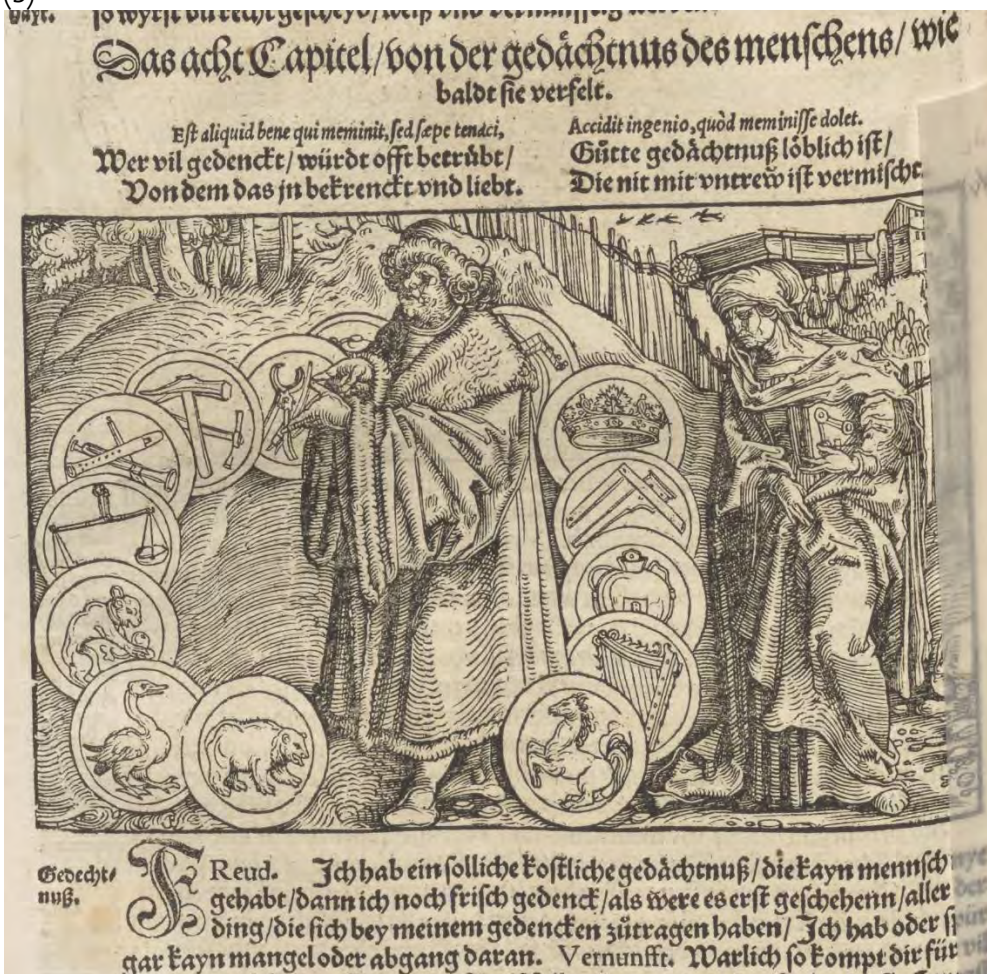 (3)
Das acht Capitel/von der gedächtnus des menschens/ wie
baldt sie verfelt.
Est aliquid bene qui meminit, sed sæpe tenaci,
Wer vil gedenckt/ würdt offt betrübt/
Von dem das jn bekrenckt vnd liebt.
Accidit ingenio, quòd meminisse dolet.
Gůtte gedächtnuß löblich ist/
Die nit mit vntrew ist vermischt.
Gedecht⸗
nuß.
FReud. Ich hab ein solliche kostliche gedächtnuß/ die kayn mennsch
gehabt/ dann ich noch frisch gedenck/ als were es erst geschehenn/ aller
ding/ die sich bey meinem gedencken zůtragen haben/ Ich hab oder
gar kayn mangel oder abgang daran. Vernunfft. Warlich so kompt dir für